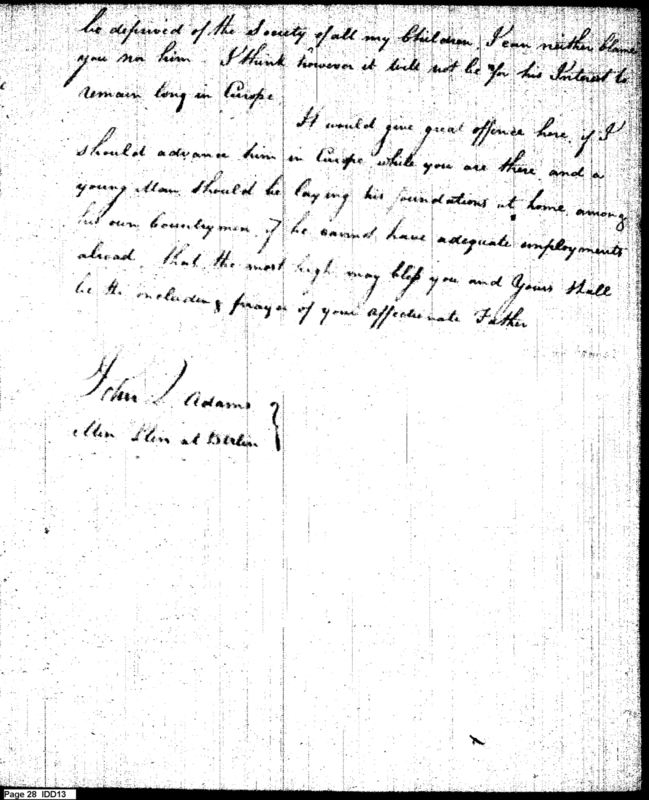 be deprived of the Society of all my Children. I can neither blame
you nor him. I think however it will not be for his Interest to
remain long in Europe.
It would give great offence here, if I
should advance him in Europe while you are there, and a
young Man should be laying his foundations at home, among
his own Countrymen, if he cannot have adequate employments
abroad. That the most high may bless you and Yours shall
be the concluding prayer of your affectionate Father
John Q Adams
Min Plen at Berlin
Page 28 IDD13